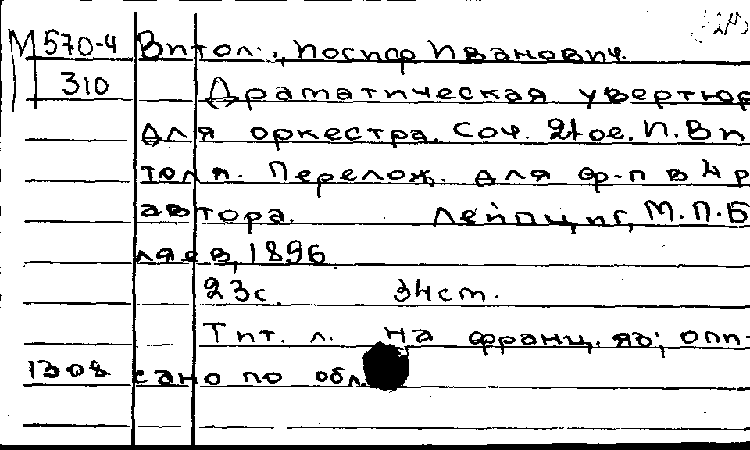 М 570-4 Витол., Иосиф Иванович.
310 Драматическая увертюр
для оркестра. Соч. 21ое. И. Ви
толя. Перелож. для ф-п в 4 р
автора. Лейпциг, М.П.Б
ляев, 1896
23с. 34см.
Тит. л. на франц. яз; опи-
1308 сано по обл.